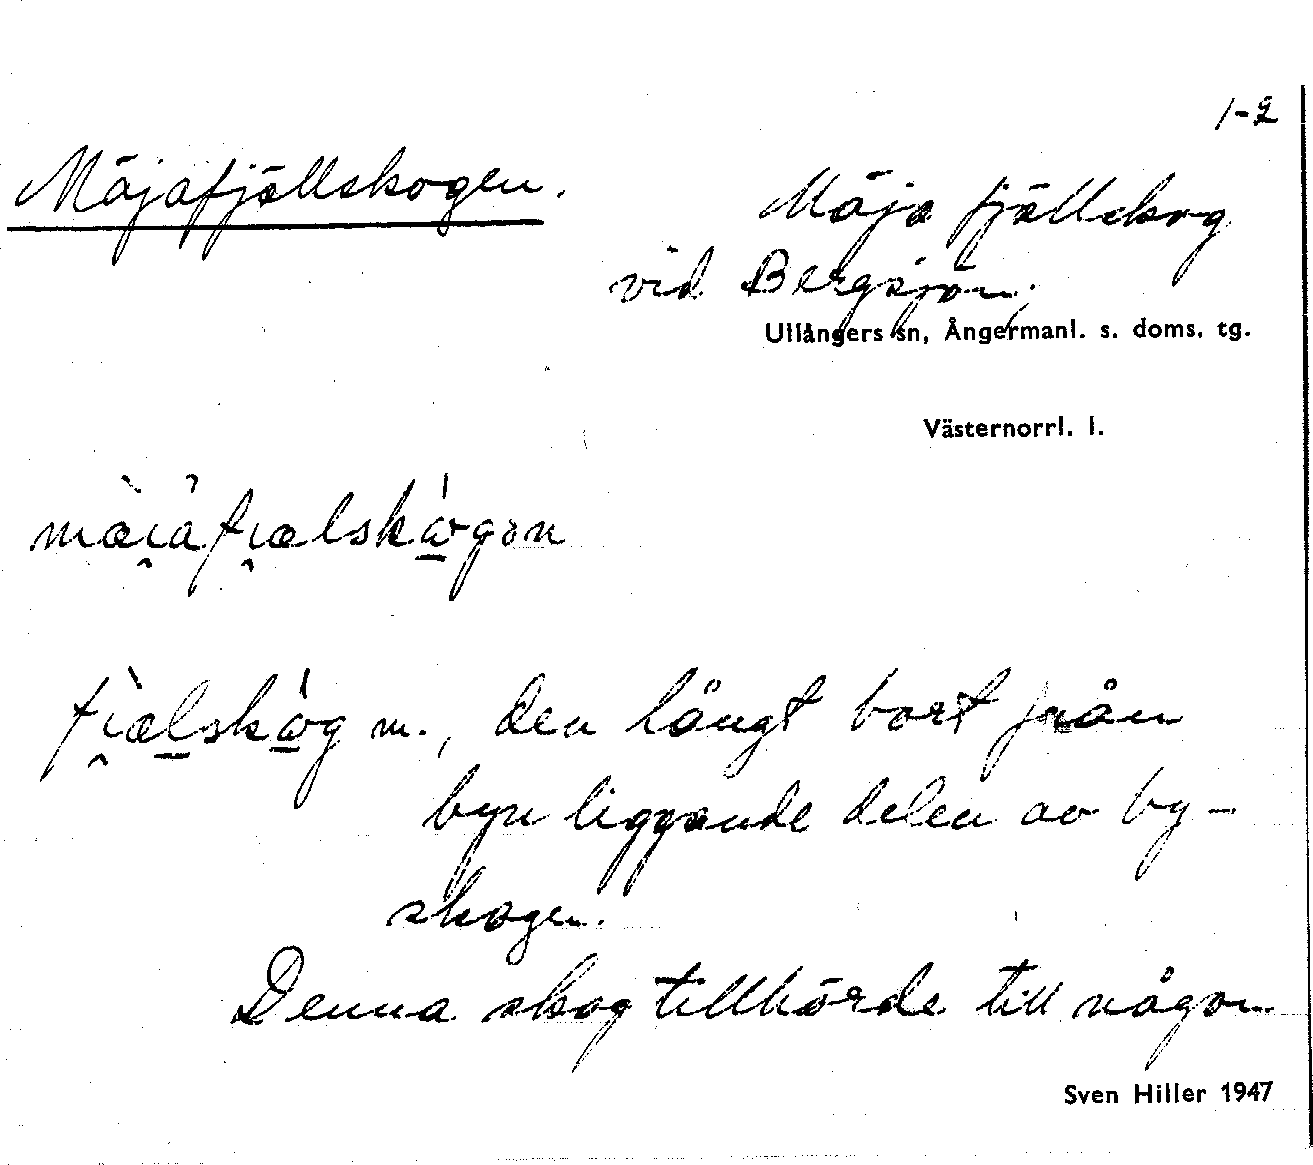 1-2
Mäjafjällskogen.
Mäja fjällskog
vid Bergsjön,
Ullångers sn, Ångermanl. s. doms. tg.
Västernorrl. l.
mæi̯afi̯ælskɷgən
fi̯ælskɷg m., den långt bort från
byn liggande delen av by-
skogen.
Denna skog tillhörde till någon
Sven Hiller 1947